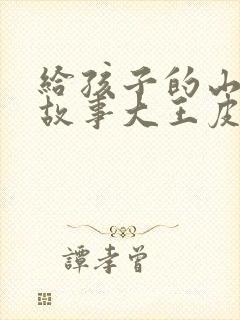 給孩子的
故事大王
譚孝曾